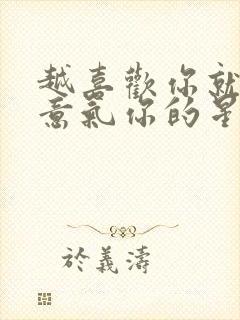 越喜歡你就
意氣你的是
於義濤